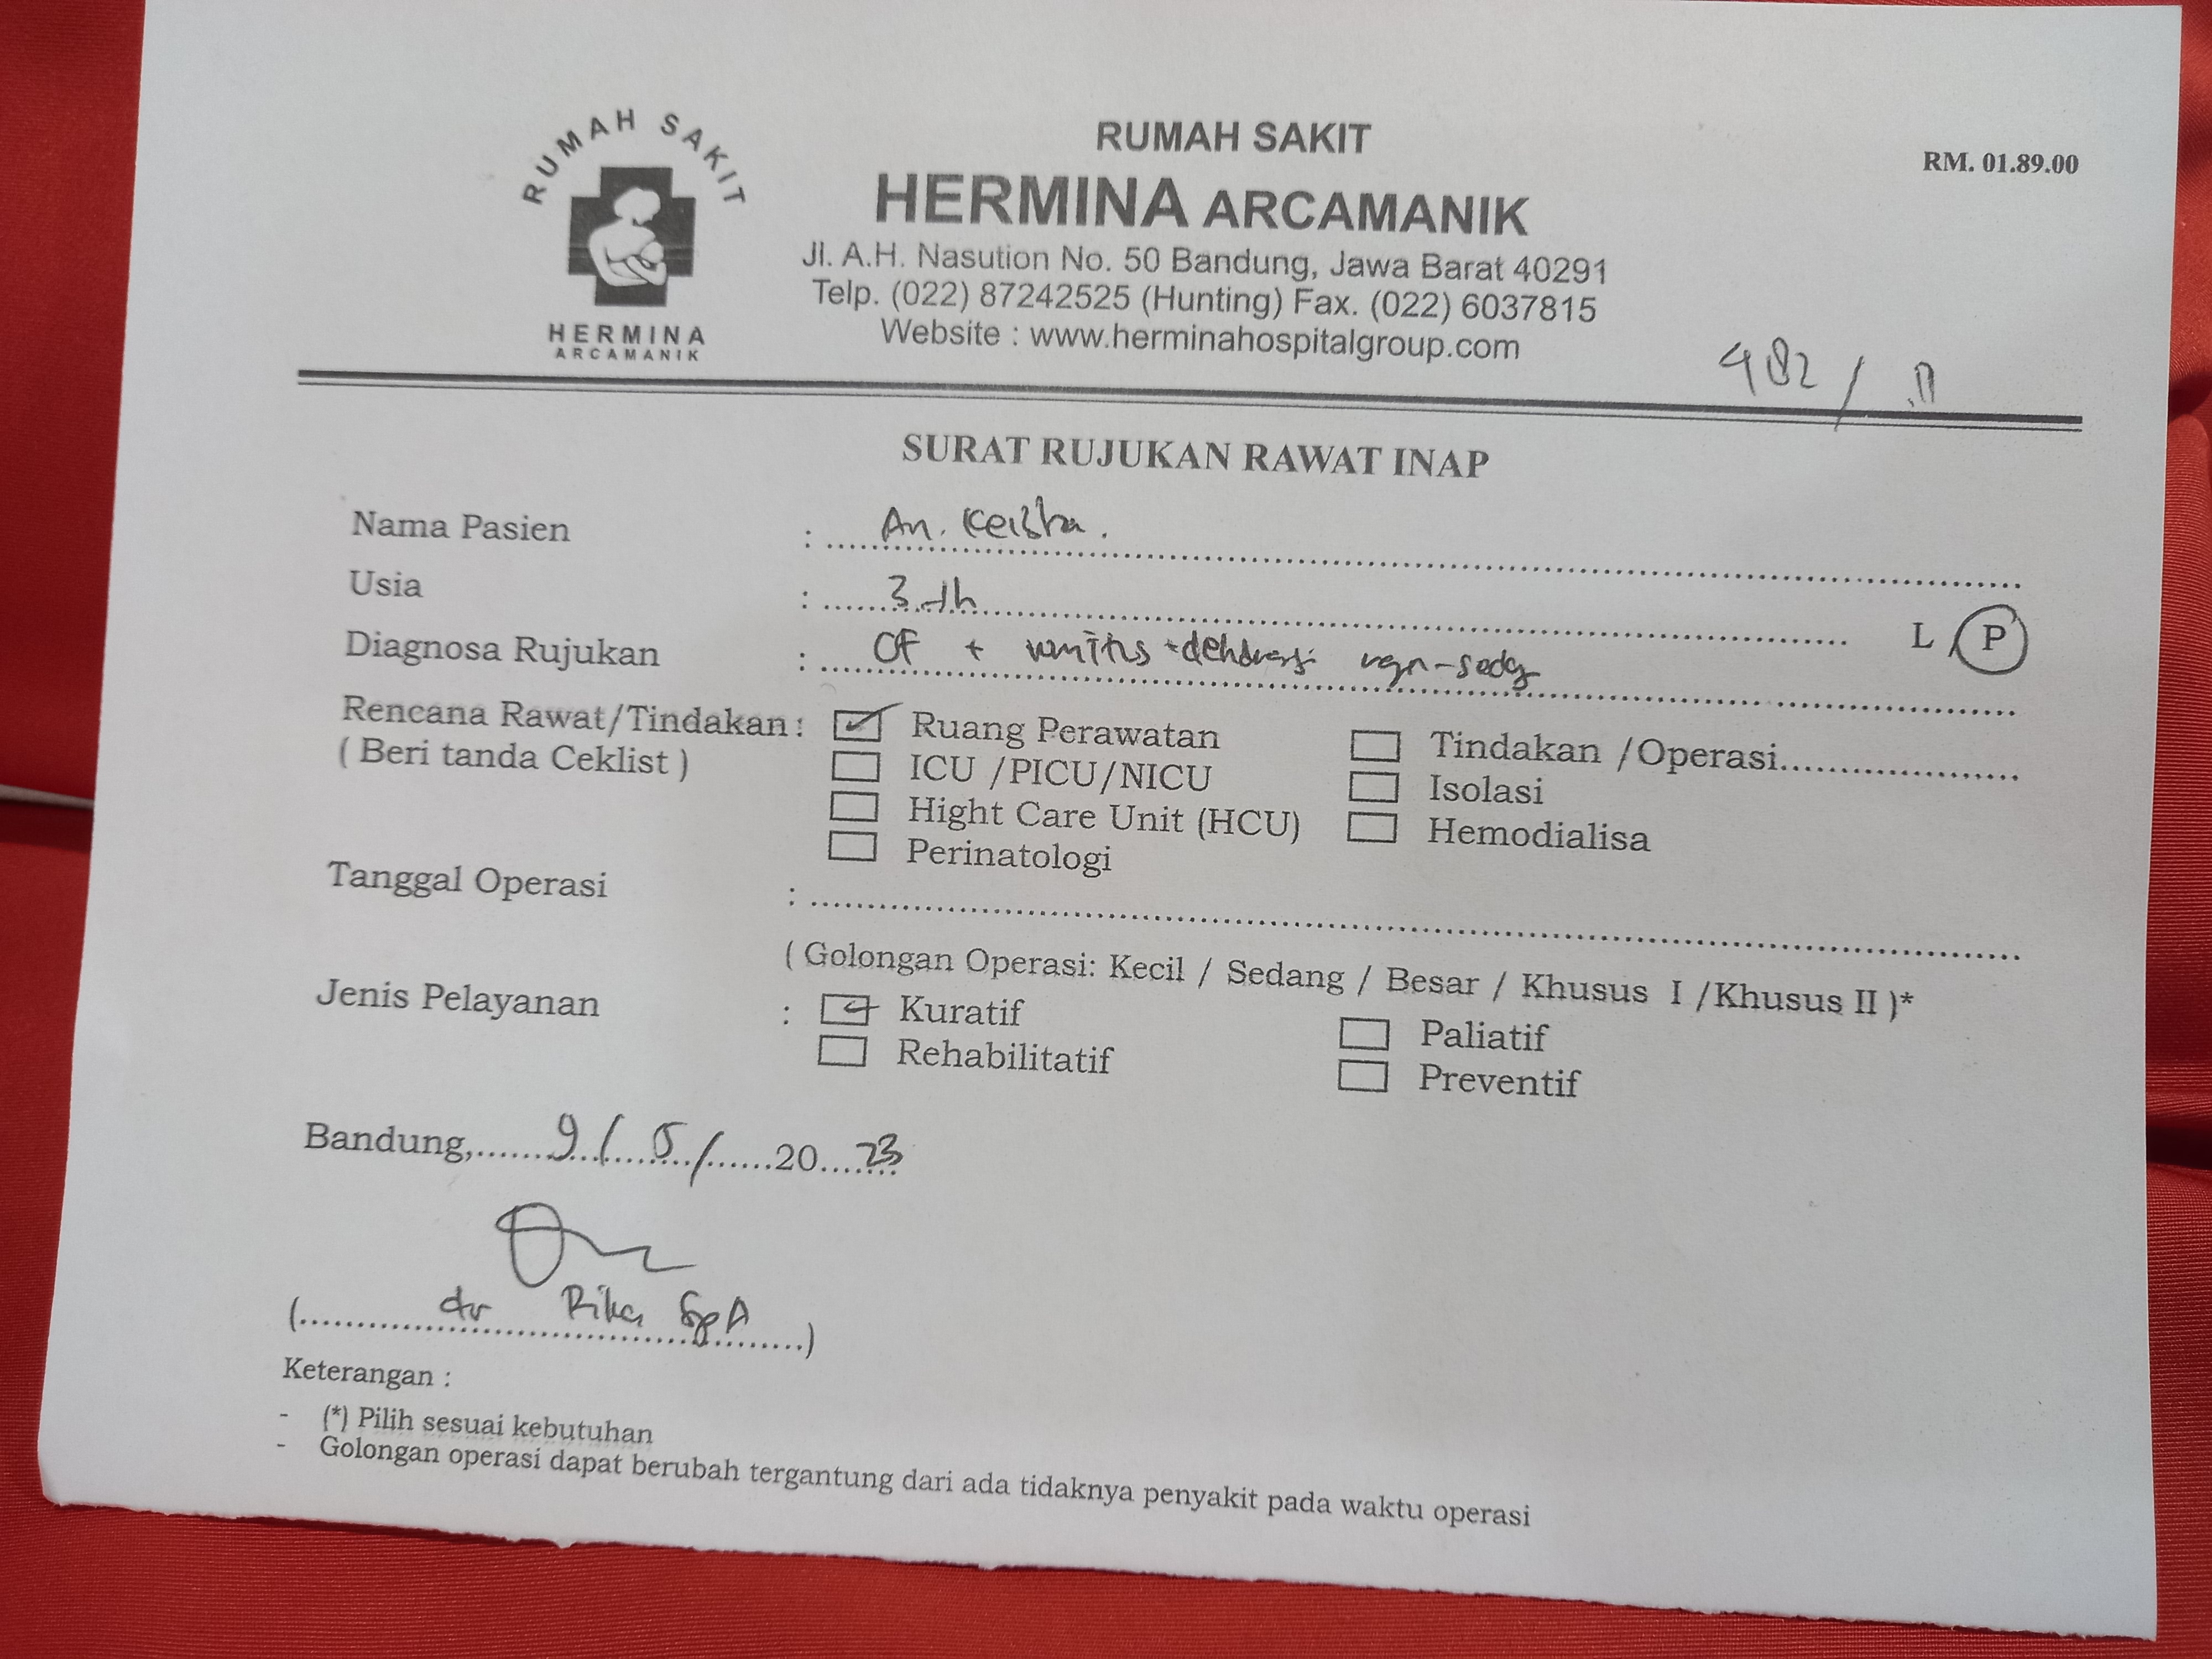 RUMAH SAKIT
HERMINA
ARCAMANIK
RUMAH SAKIT
HERMINA ARCAMANIK
Jl. A.H. Nasution No. 50 Bandung, Jawa Barat 40291
Telp. (022) 87242525 (Hunting) Fax. (022) 6037815
Website : www.herminahospitalgroup.com
RM. 01.89.00
482 /
SURAT RUJUKAN RAWAT INAP
Nama Pasien : An.
Usia : 3 th L / P
Diagnosa Rujukan : + vomitus + dehidrasi
Rencana Rawat/Tindakan : Ruang Perawatan Tindakan /Operasi
( Beri tanda Ceklist ) ICU /PICU/NICU Isolasi
Hight Care Unit (HCU) Hemodialisa
Perinatologi
Tanggal Operasi :
( Golongan Operasi: Kecil / Sedang / Besar / Khusus I /Khusus II )*
Jenis Pelayanan : Kuratif Paliatif
Rehabilitatif Preventif
Bandung, 9 / 5 / 20 23
( dr Rika SpA )
Keterangan :
- (*) Pilih sesuai kebutuhan
- Golongan operasi dapat berubah tergantung dari ada tidaknya penyakit pada waktu operasi